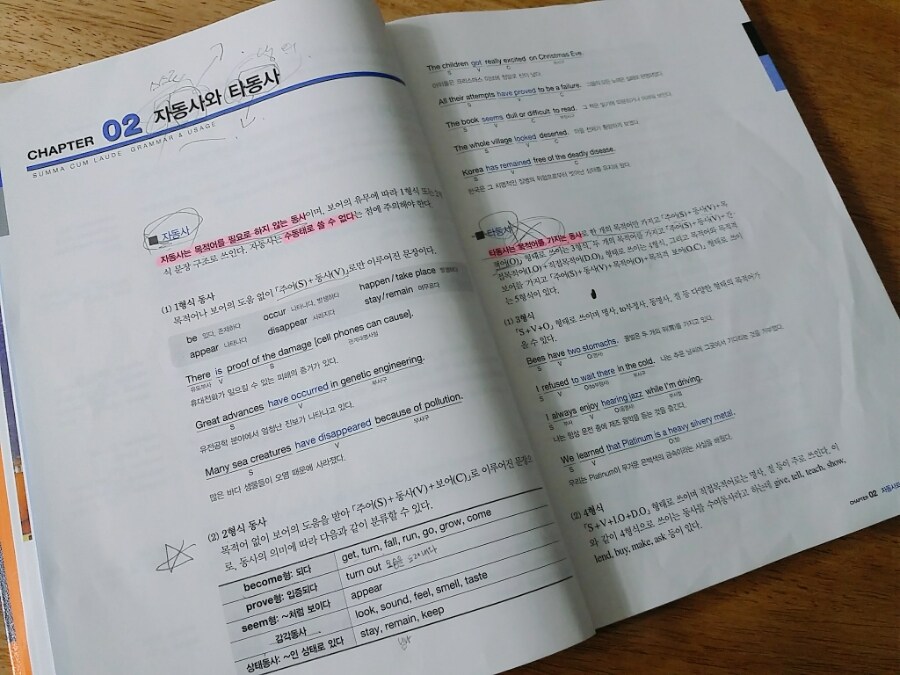 CHAPTER 02 자동사와 타동사
SUMMA CUM LAUDE GRAMMAR & USAGE
■ 자동사
자동사는 목적어를 필요로 하지 않는 동사이며, 보어의 유무에 따라 1형식 또는
식 문장 구조로 쓰인다. 자동사는 수동태로 쓸 수 없다는 점에 주의해야 한다.
(1) 1형식 동사
목적어나 보어의 도움 없이 「주어(S)+동사(V)」로만 이루어진 문장이다.
be 있다, 존재하다 occur 나타나다, 발생하다 happen / take place 발생하다
appear 나타나다 disappear 사라지다 stay / remain 머무르다
There is proof of the damage [cell phones can cause].
유도부사 V S 관계대명사절
휴대전화가 일으킬 수 있는 피해의 증거가 있다.
Great advances have occurred in genetic engineering.
S V 부사구
유전공학 분야에서 엄청난 진보가 나타나고 있다.
Many sea creatures have disappeared because of pollution.
S V 부사구
많은 바다 생물들이 오염 때문에 사라졌다.
(2) 2형식 동사
목적어 없이 보어의 도움을 받아 「주어(S)+동사(V)+보어(C)」로 이루어진 문장으
로, 동사의 의미에 따라 다음과 같이 분류할 수 있다.
become형: 되다 get, turn, fall, run, go, grow, come
prove형: 입증되다 turn out
seem형: ~처럼 보이다 appear
감각동사 look, sound, feel, smell, taste
상태동사: ~인 상태로 있다 stay, remain, keep
The children got really excited on Christmas Eve.
S V C
All their attempts have proved to be a failure.
S V C
The book seems dull or difficult to read.
S V C
The whole village looked deserted.
S V C
Korea has remained free of the deadly disease.
S V C
■ 타동사
타동사는 목적어를 가지는 동사로 한 개의 목적어만 가지고 「주어(S)+동사(V)+목
적어(O)」 형태로 쓰이는 3형식, 두 개의 목적어를 가지고 「주어(S)+동사(V)+간
접목적어(I.O)+직접목적어(D.O)」 형태로 쓰이는 4형식, 그리고 목적어와 목적격
보어를 가지고 「주어(S)+동사(V)+목적어(O)+목적격 보어(O.C)」 형태로 쓰이
는 5형식이 있다.
(1) 3형식
「S+V+O」 형태로 쓰이며 명사, to부정사, 동명사, 절 등 다양한 형태의 목적어가
올 수 있다.
Bees have two stomachs.
S V O
I refused to wait there in the cold.
S V
I always enjoy hearing jazz while I'm driving.
S V
나는 항상 운전 중에 재즈 음악을 듣는 것을 즐긴다.
We learned that Platinum is a heavy silvery metal.
S V
우리는 Platinum이 무거운 은백색의 금속이라는 사실을 배웠다.
(2) 4형식
「S+V+I.O+D.O」 형태로 쓰이며 직접목적어로는 명사, 절 등이 주로 쓰인다. 이
와 같이 4형식으로 쓰이는 동사를 수여동사라고 하는데 give, tell, teach, show,
lend, buy, make, ask 등이 있다.
CHAPTER 02